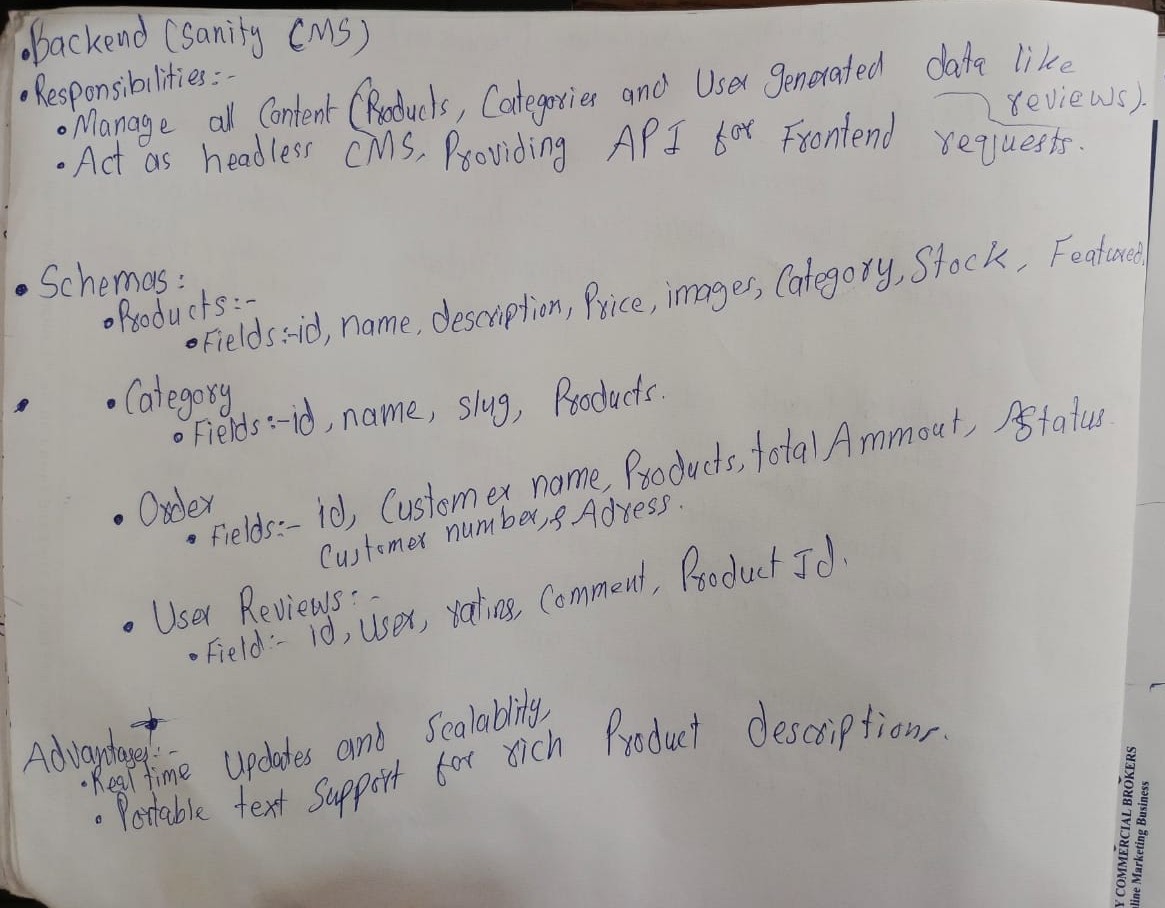 •Backend (Sanity CMS)
•Responsibilities:-
•Manage all Content (Products, Categories and User generated data like
reviews).
•Act as headless CMS, Providing API for Frontend requests.
• Schemas:
•Products:-
•Fields:-id, name, description, Price, images, Category, Stock, Featured,
• Category
• Fields:-id, name, slug, Products.
• Order
• Fields:- id, Customer name, Products, total Ammout, Status.
Customer number, & Adress.
• User Reviews:-
• Field:- id, User, rating, Comment, Product Id.
Advantages:-
•Real time Updates and Scalablity,
• Portable text Support for rich Product descriptions.
Y COMMERCIAL BROKERS
line Marketing Business